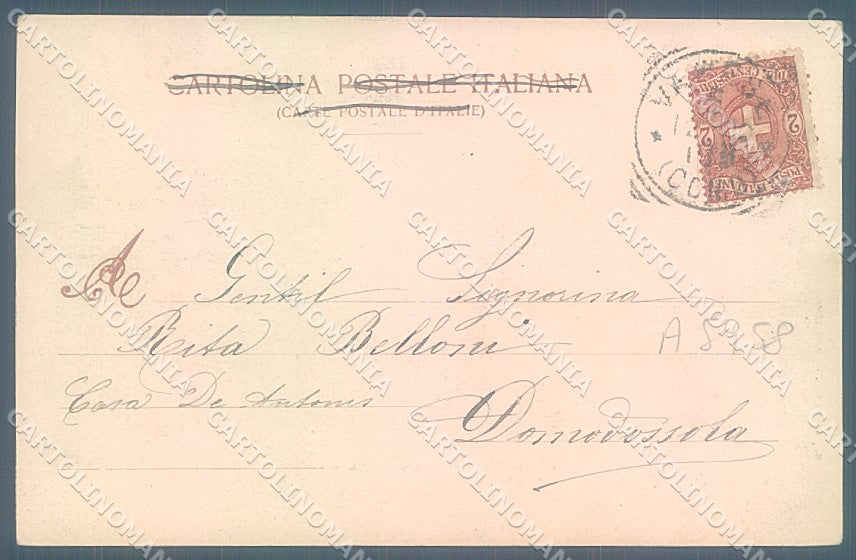 CARTOLINA POSTALE ITALIANA
(CARTE POSTALE D'ITALIE)
2 2
POSTE ITALIANE
A
Gentil Signorina
Rita Belloni
A 8958
Casa De Antonis
Domodossola
CARTOLINOMANIA